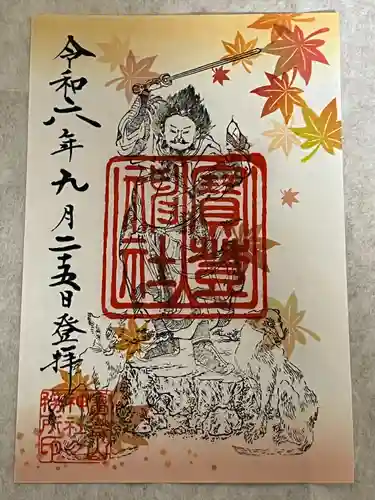 令和六年九月二十五日登拝
寳登山
神社